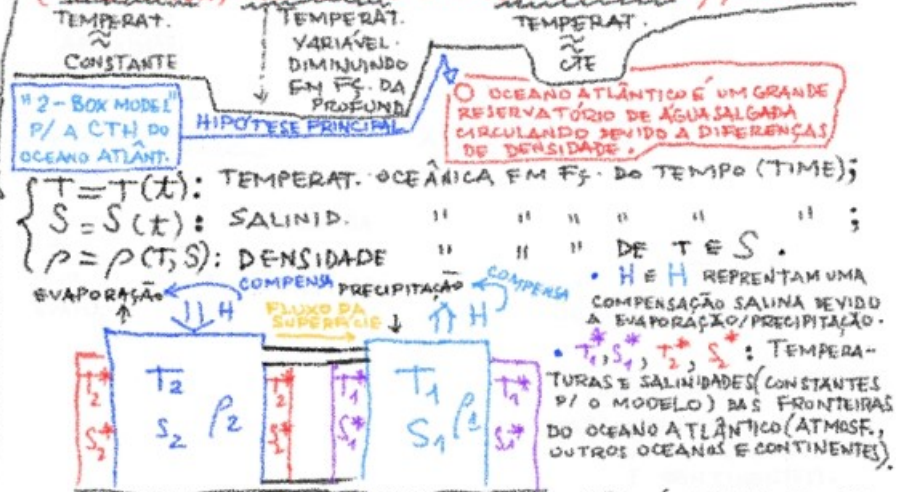 TEMPERAT.
≈
CONSTANTE
TEMPERAT.
VARIÁVEL.
DIMINUINDO
EM FÇ. DA
PROFUND.
TEMPERAT.
≈
CTE
"2-BOX MODEL"
P/ A CTH DO
OCEANO ATLÂNT.
HIPÓTESE PRINCIPAL
O OCEANO ATLÂNTICO É UM GRANDE
RESERVATÓRIO DE ÁGUA SALGADA
CIRCULANDO DEVIDO A DIFERENÇAS
DE DENSIDADE.
T = T(t): TEMPERAT. OCEÂNICA EM FÇ. DO TEMPO (TIME);
S = S(t): SALINID. " " " " " " ;
ρ = ρ(T,S): DENSIDADE " " " DE T E S.
EVAPORAÇÃO
COMPENSA
H
FLUXO DA
SUPERFÍCIE
PRECIPITAÇÃO
COMPENSA
H
• H E H REPRENTAM UMA
COMPENSAÇÃO SALINA DEVIDO
A EVAPORAÇÃO/PRECIPITAÇÃO.
• T₁*, S₁*, T₂*, S₂*: TEMPERA-
TURAS E SALINIDADES (CONSTANTES
P/ O MODELO) DAS FRONTEIRAS
DO OCEANO ATLÂNTICO (ATMOSF.,
OUTROS OCEANOS E CONTINENTES).
T₂* T₂ T₂* T₁* T₁ T₁*
S₂* S₂ ρ₂ S₂* S₁* S₁ ρ₁ S₁*